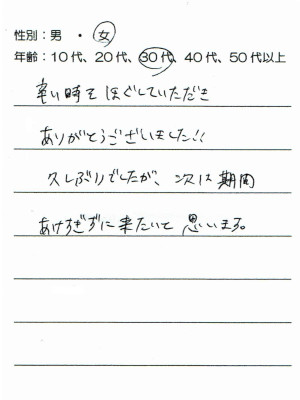 性別：男 ・ 女
年齢：10代、20代、30代、40代、50代以上
辛い時を ほぐしていただき
ありがとうございました!!
久しぶりでしたが、次は期間
あけすぎずに来たいと思います。